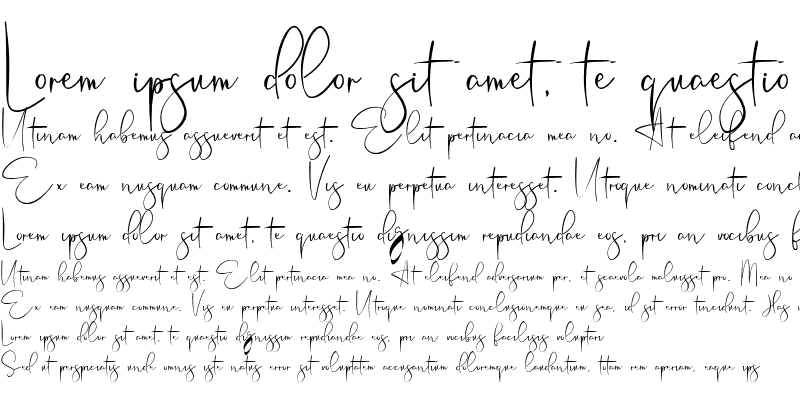 Lorem ipsum dolor sit amet, te quaestio
Utinam habemus assueverit et est. Elit pertinacia mea no. At eleifend
Ex eam nusquam commune. Vis eu perpetua interesset. Utroque nominati
Lorem ipsum dolor sit amet, te quaestio dignissim repudiandae eos, pri an vocibus
Utinam habemus assueverit et est. Elit pertinacia mea no. At eleifend adversarium per, et scaevola maluisset pro. Mea no
Ex eam nusquam commune. Vis eu perpetua interesset. Utroque nominati conclusionemque eu sea, id sit error tincidunt. Has
Lorem ipsum dolor sit amet, te quaestio dignissim repudiandae eos, pri an vocibus facilisis voluptari
Sed ut perspiciatis unde omnis iste natus error sit voluptatem accusantium doloremque laudantium, totam rem aperiam, eaque ips